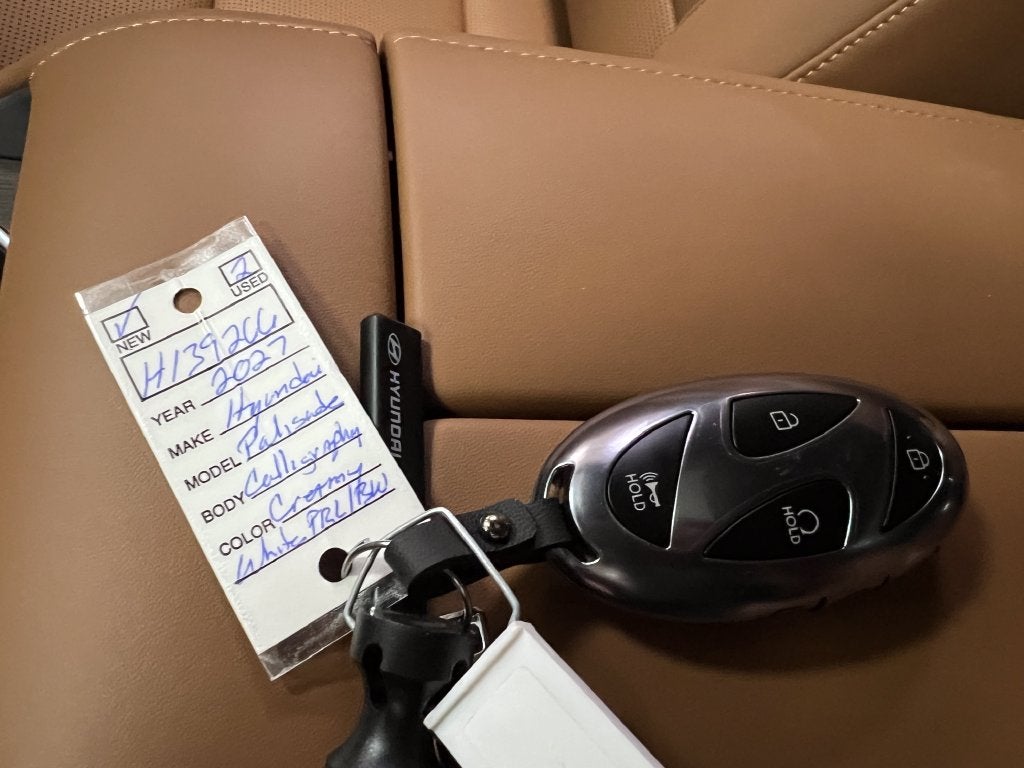 2
NEW
USED
H139266
YEAR 2027
MAKE Hyundai
MODEL Palisade
BODY Calligraphy
COLOR Creamy
White PRL/BW
HYUNDAI
HOLD
HOLD